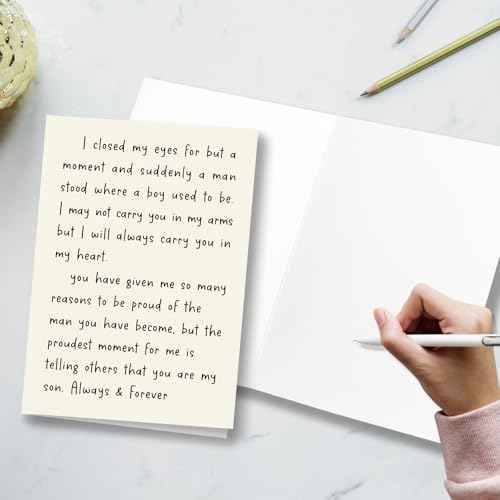 I closed my eyes for but a
moment and suddenly a man
stood where a boy used to be.
I may not carry you in my arms
but I will always carry you in
my heart.
you have given me so many
reasons to be proud of the
man you have become, but the
proudest moment for me is
telling others that you are my
son. Always & Forever